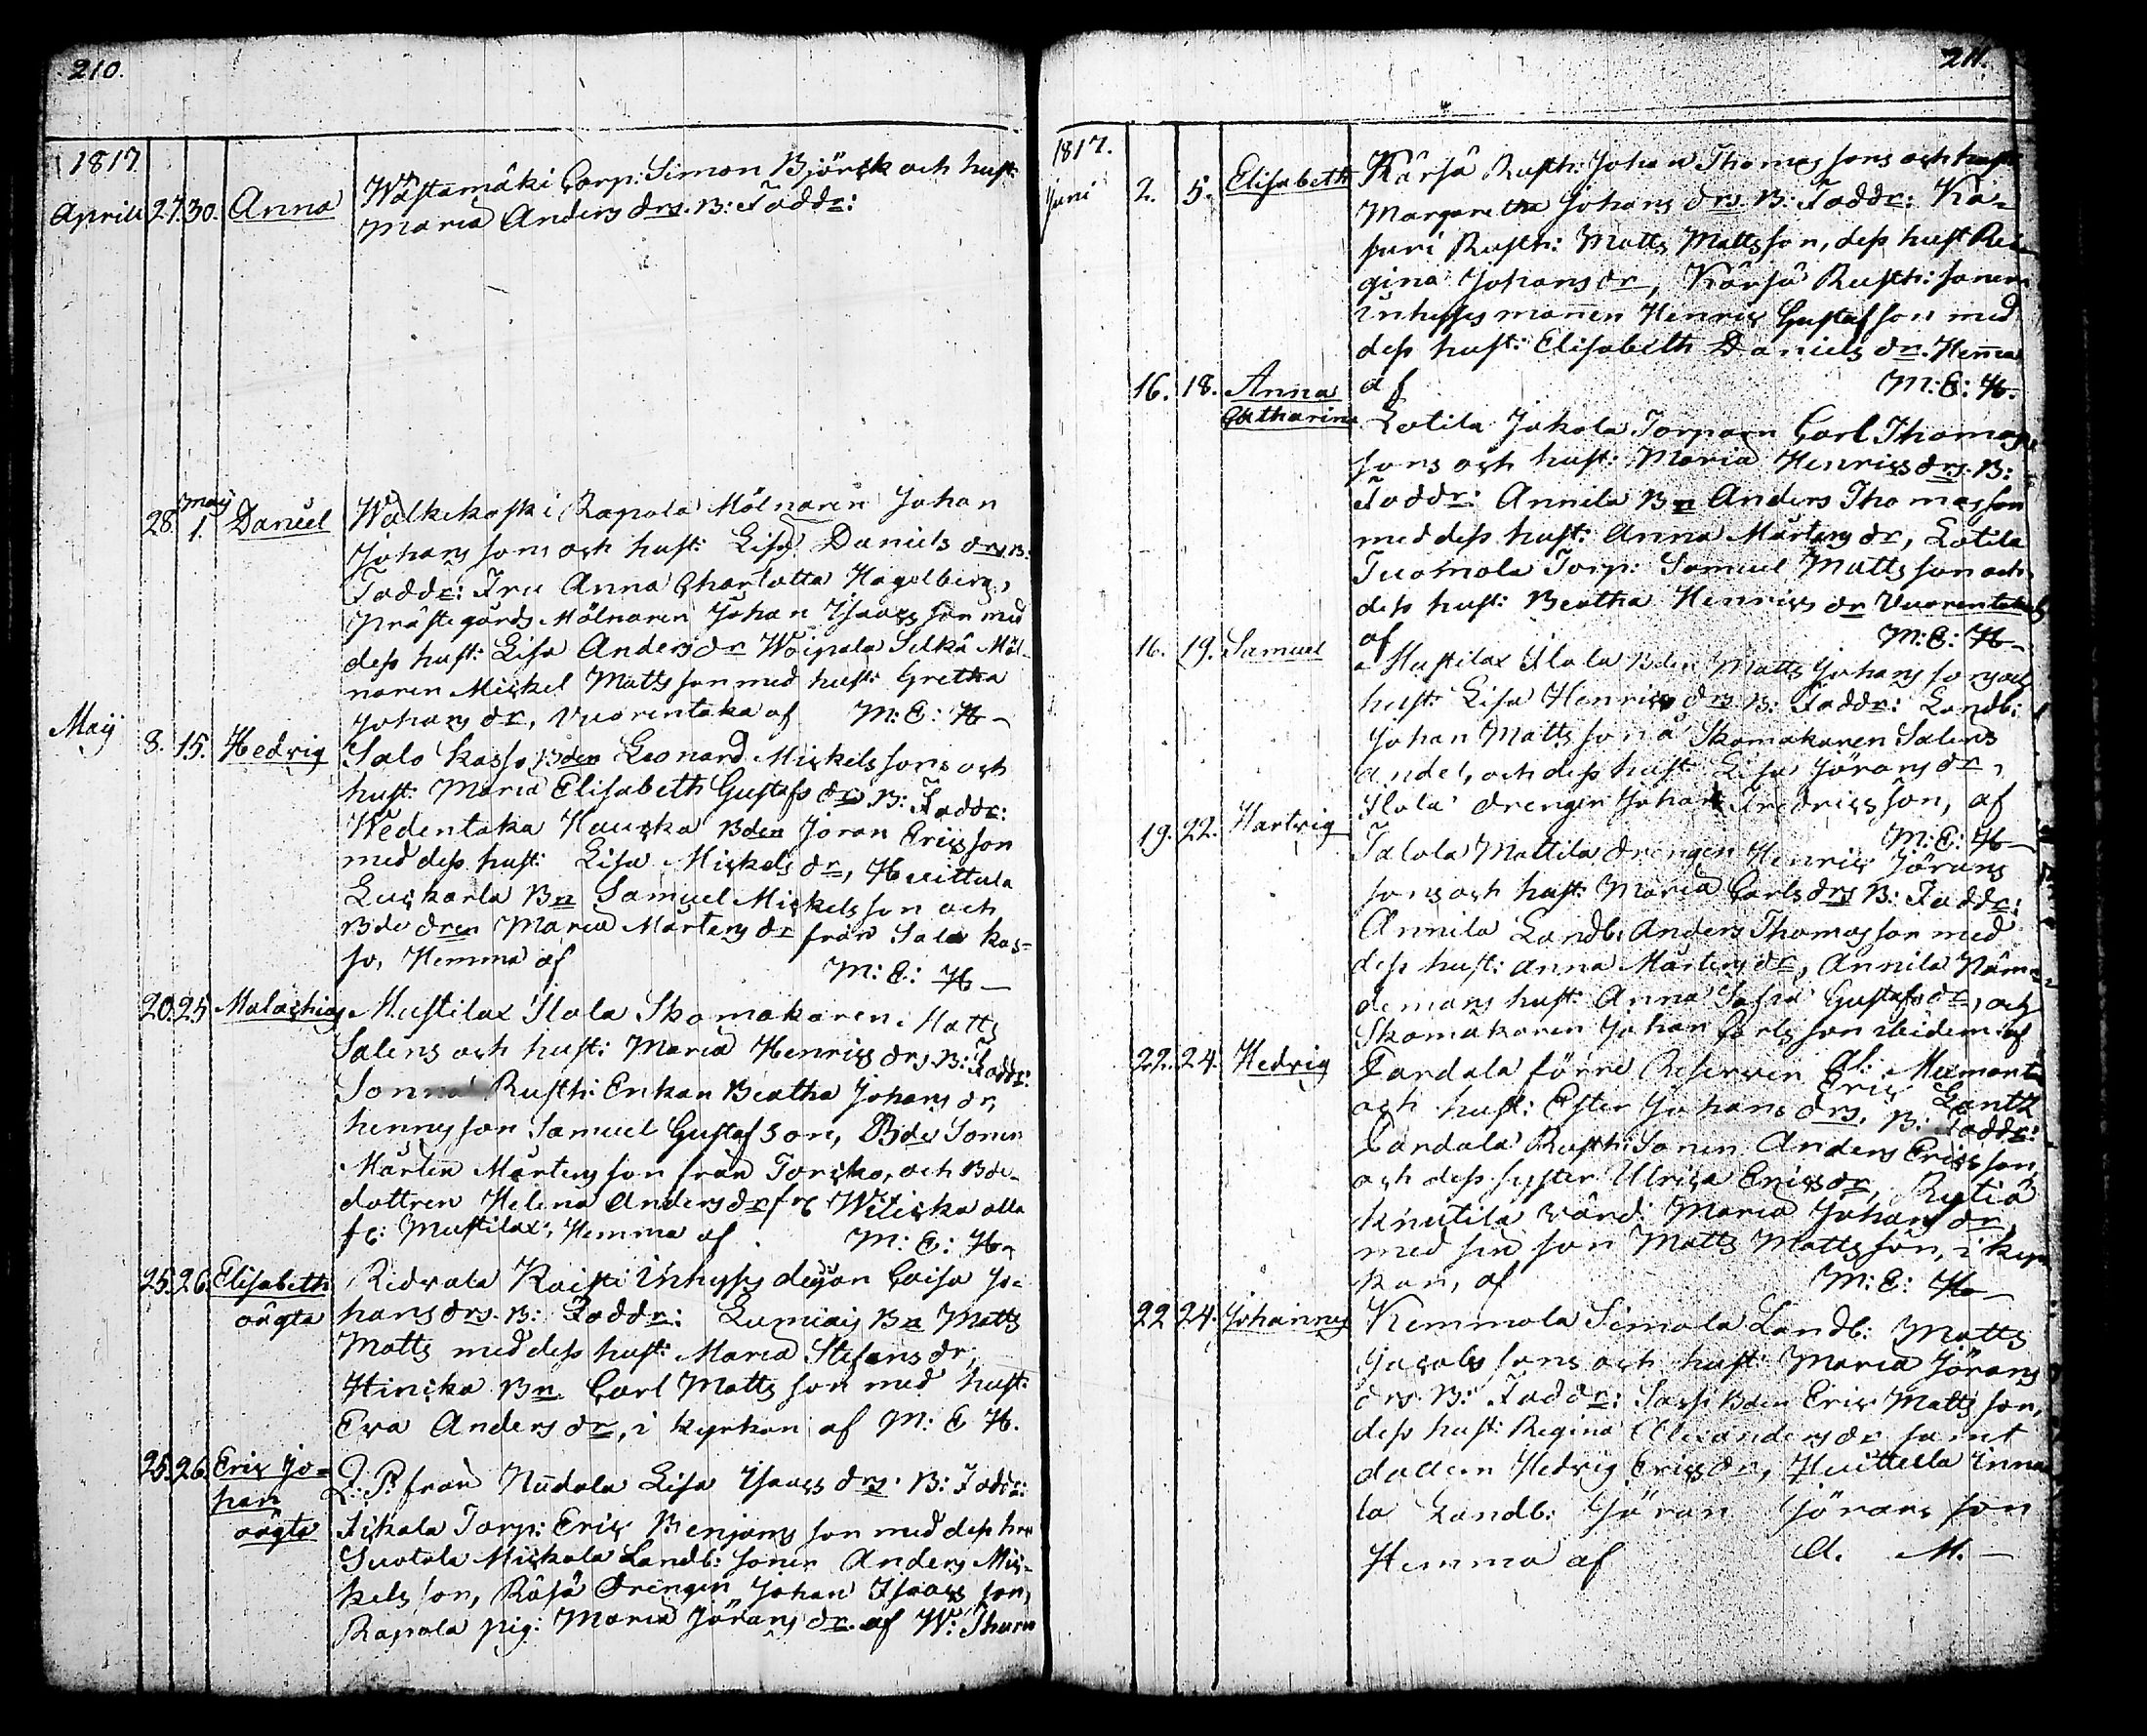 210.
1817
Aprill 27. 30. Anna Wästamäki Corp: Simon Björck och hust:
Maria Anders drs. B: Faddr:
28. May 1. Daniel Walkekoski Rapala Mölnaren Johan
Johans sons och hust: Lisa Daniels drs B:
Faddr: Fru Anna Charlotta Hagelberg,
Prästegårds Mölnaren Johan Isaacs son med
dess hust: Lisa Anders dr Woipala Silkä Möl-
naren Mickel Matts son med hust: Gretha
Johans dr, Vuorentaka af M: E: H-
May 8. 15. Hedvig Salo Kasso Bden Leonard Mickels sons och
hust: Maria Elisabeth Gustafs drs B: Faddr:
Wedentaka Hauska Bden Jöran Ericsson
med dess hust: Lisa Mickels dr, Huittula
Luckarla Bn Samuel Mickels son och
Bde dren Maria Mårtens dr från Salo Kas-
so, Hemma af M: E: H-
20. 25 Malachias Mustilax Ilola Skomakaren Matts
Salens och hust: Maria Henrics drs. B: Faddr:
Rusth: Enkan Beatha Johans dr,
hennes son Samuel Gustafson, Bde Sonen
Mårten Mårtens son från Toricko, och Bde-
dottren Helena Anders dr fr: Wilicka alla
fr: Mustilax, Hemma af M: E: H-
25. 26. Elisabeth Ridvala Kaisti Inhyses dejan Caisa Jo-
oägta hans drs. B: Faddr: Lumiais Bn Matts
Matts med dess hust: Maria Stefans dr,
Hinicka Bn Carl Matts son med hust:
Eva Anders dr, i kyrkan af M: E H.
25. 26. Eric Jo- Q: P. från Nudala Lisa Isaacs drs. B: Faddr:
han
oägta Eric Benjams son med dess
Suotala Mickola Landb: sonen Anders Mic-
kels son, Räsä Drengen Johan Isaacs son,
Rapala pig: Maria Jörans dr. af W: Thuren
211.
1817.
Juni 2. 5. Elisabeth Kärsä Rusth: Johan Thomas sons och hust
Margaretha Johans drs B: Faddr: Ka-
suri Rusth: Matts Mattsson, dess hust Re-
gina Johans dr, Kärsä Rusth: sonen
Inhyses mannen Henric Gustafson med
dess hust: Elisabeth Daniels dr. Hemma
16. 18. Anna af M: E: H-
Catharina Lotila Jokala Torparn Carl Thomas
sons och hust: Maria Henrics drs. B:
Faddr: Annila Bn Anders Thomasson
med dess hust: Anna Mårtens dr, Lotila
Tuomola Torp: Samuel Matts son och
dess hust: Beatha Henrics dr Vuorentaka
af M: E: H-
16. 19. Samuel Mustilax Ilola Bden Matts Johans sons och
hust: Lisa Henrics drs. B: Faddr: Landb:
Johan Matts son å Skomakaren Salens
andel, och dess hust: Lisa Jörans dr,
Ilola drengen Johan Fredrics son, af
19. 22. Hartvig M: E: H-
Talola Mattila drengen Henric Jörans
sons och hust: Maria Carls drs B: Faddr:
Annila Landb: Anders Thomas son med
dess hust: Anna Mårtens dr, Annila Näm-
demans hust: Anna Sofia Gustafs dr, och
Skomakaren Johan Carls son ibidem: af
22. 24. Hedvig Pandala förre Reserven Eric Gantz
och hust: Ester Johans drs, B: Faddr:
Pandala Rusth: Sonen Anders Erics son,
och dess syster Ulrica Erics dr, Rytiä
Knutila värd: Maria Johans dr,
med sin son Matts Mattsson, i kyr
kan, af M: E: H-
22 24. Johannes Kemmola Simola Landb: Matts
Jacobs sons och hust: Maria Jörans
drs. B: Faddr: Sassi Bden Eric Matts son,
dess hust: Regina Alexanders dr samt
Hedvig Erics dr, Huittula Inna
la Landb: Jöran Jörans son
Hemma af A. M.-